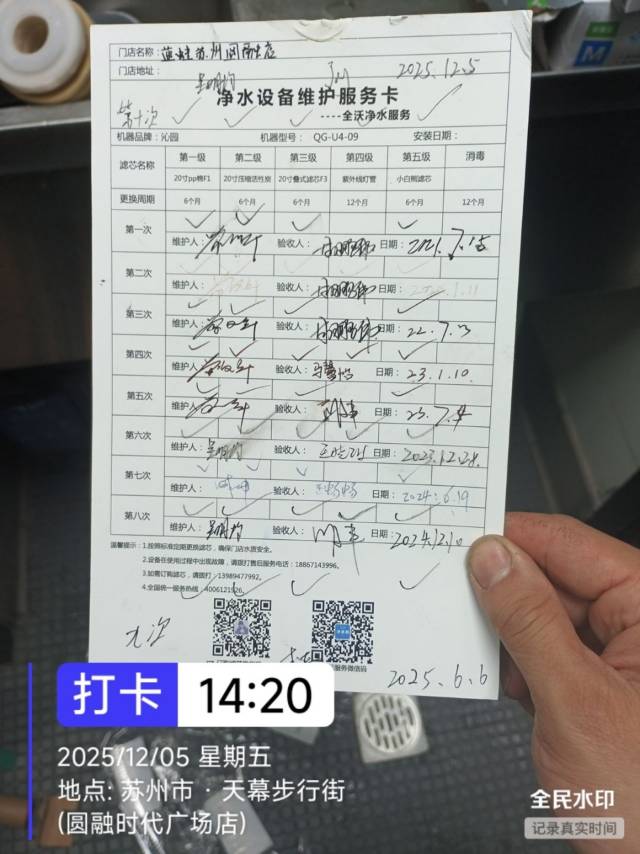 门店名称：
门店地址：
2025.12.5
净水设备维护服务卡
第十次
----全沃净水服务
机器品牌：沁园 机器型号： QG-U4-09 安装日期：
滤芯名称 第一级 第二级 第三级 第四级 第五级 消毒
20寸pp棉F1 20寸压缩活性炭 20寸叠式滤芯F3 紫外线灯管 小白鞋滤芯
更换周期 6个月 6个月 6个月 12个月 6个月 12个月
第一次
维护人： 验收人： 日期：2021.7.15
第二次
维护人： 验收人： 日期：
第三次
维护人： 验收人： 日期：22.7.3
第四次
维护人： 验收人： 日期：23.1.10.
第五次
维护人： 验收人： 日期：23.7.4
第六次
维护人： 验收人： 日期：2023.12.28.
第七次
维护人： 验收人：王畅畅 日期：2024.6.19
第八次
维护人： 验收人： 日期：2024.12.10
温馨提示：1.按照标准定期更换滤芯，确保门店水质安全。
2.设备在使用过程中出现故障，请拨打售后服务电话：18867143996。
3.如需订购滤芯，请拨打：13989477992。
4.全国统一服务热线：4006121926
九次
2025.6.6
打卡 14:20
2025/12/05 星期五
地点: 苏州市 · 天幕步行街
(圆融时代广场店)
全民水印
记录真实时间